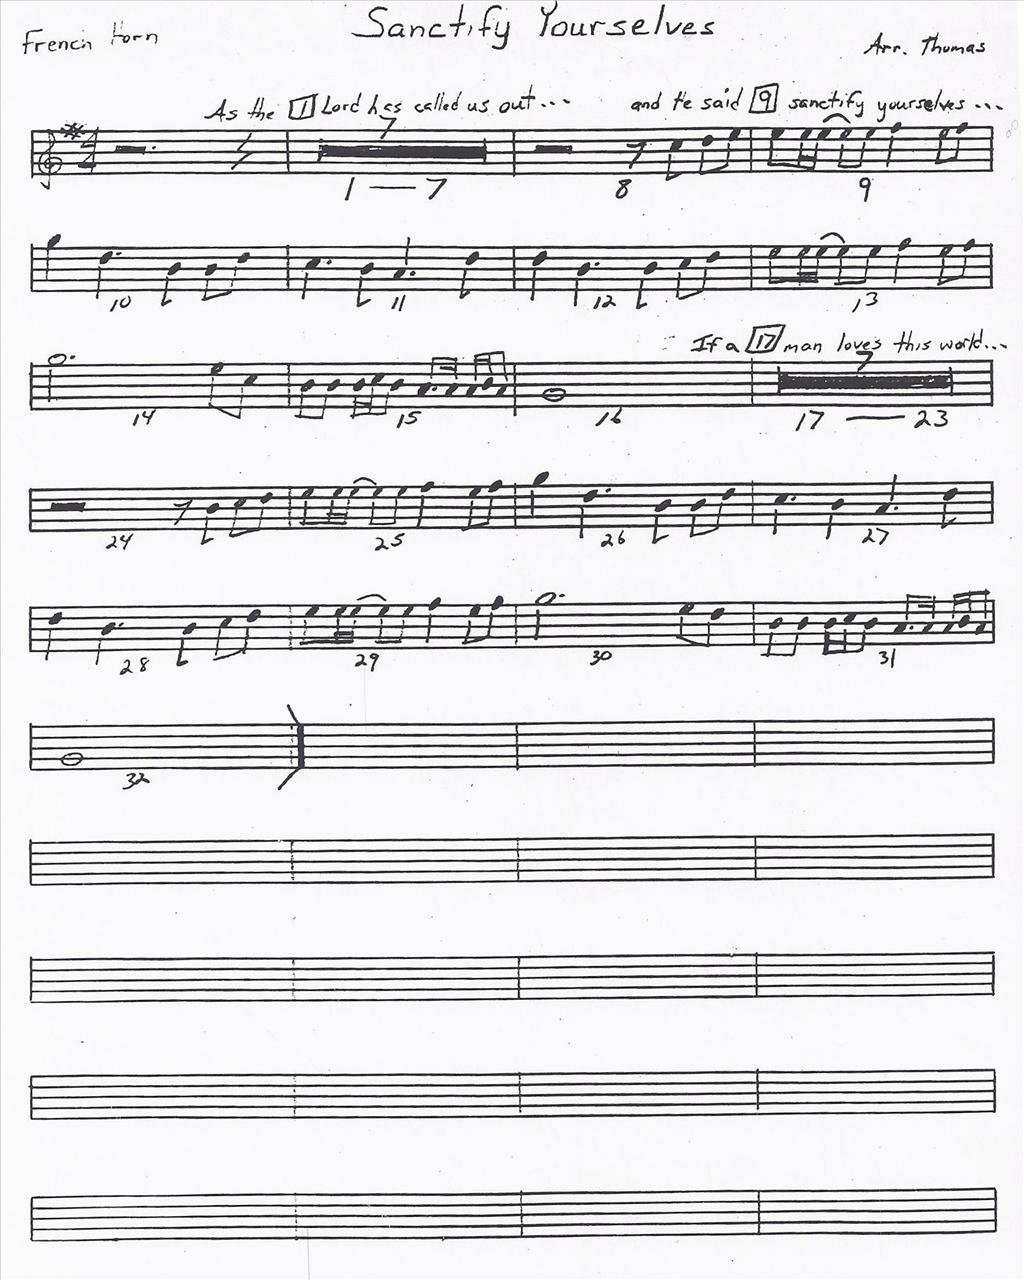 Sanctify Yourselves
French Horn
Arr. Thomas
As the 1 Lord has called us out... and He said 9 sanctify yourselves...
7
1 — 7 8 9
10 11 12 13
If a 17 man loves this world...
7
14 15 16 17 — 23
24 25 26 27
28 29 30 31
32